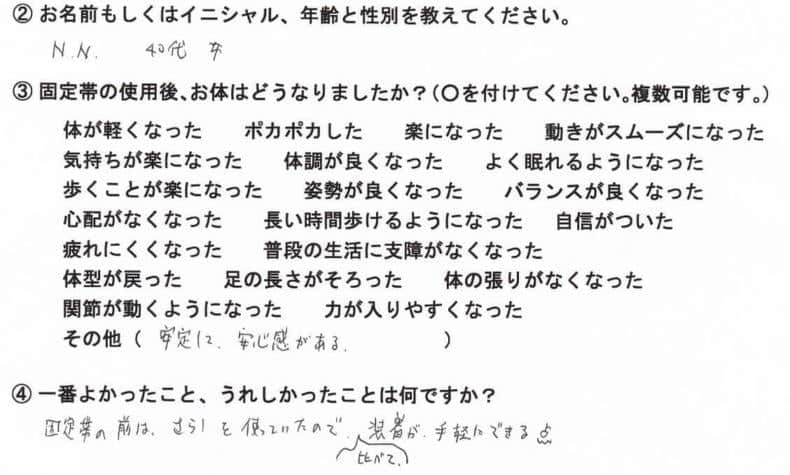 ② お名前もしくはイニシャル、年齢と性別を教えてください。
N.N. 40代 女
③ 固定帯の使用後、お体はどうなりましたか？（〇を付けてください。複数可能です。）
体が軽くなった ポカポカした 楽になった 動きがスムーズになった
気持ちが楽になった 体調が良くなった よく眠れるようになった
歩くことが楽になった 姿勢が良くなった バランスが良くなった
心配がなくなった 長い時間歩けるようになった 自信がついた
疲れにくくなった 普段の生活に支障がなくなった
体型が戻った 足の長さがそろった 体の張りがなくなった
関節が動くようになった 力が入りやすくなった
その他（ 安定して、安心感がある。 ）
④ 一番よかったこと、うれしかったことは何ですか？
固定帯の前は、さらしを使っていたので、装着が、手軽にできる点
比べて、